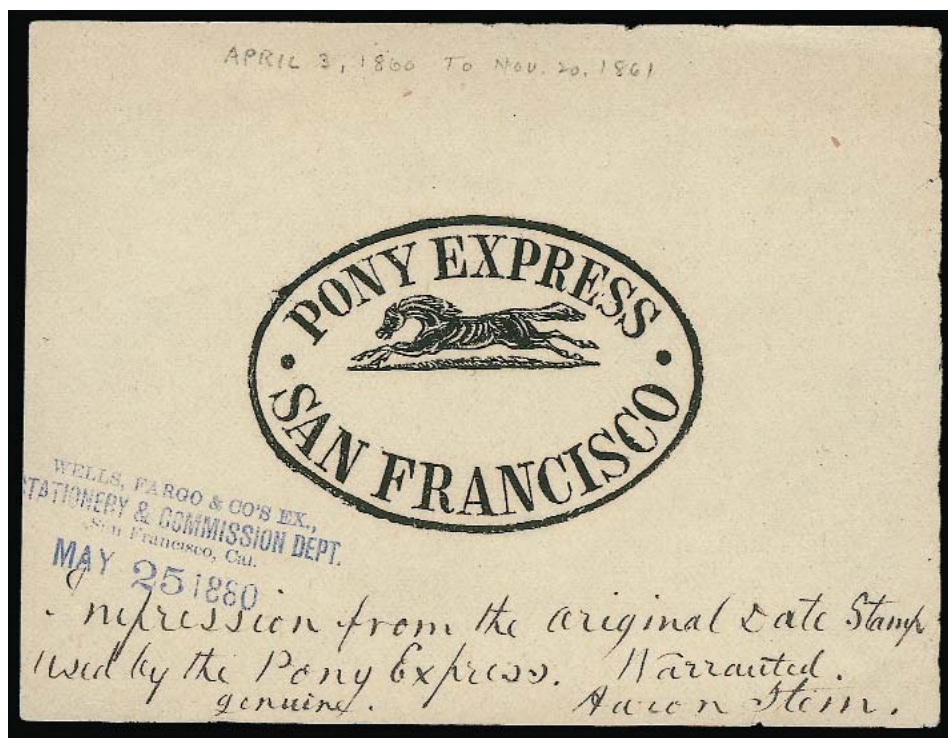 APRIL 3, 1860 TO NOV. 20, 1861
PONY EXPRESS
SAN FRANCISCO
WELLS, FARGO & CO'S EX.,
STATIONERY & COMMISSION DEPT.
San Francisco, Cal.
MAY 25 1880
Impression from the original Date Stamp
used by the Pony Express. Warranted.
genuine. Aaron Stern.